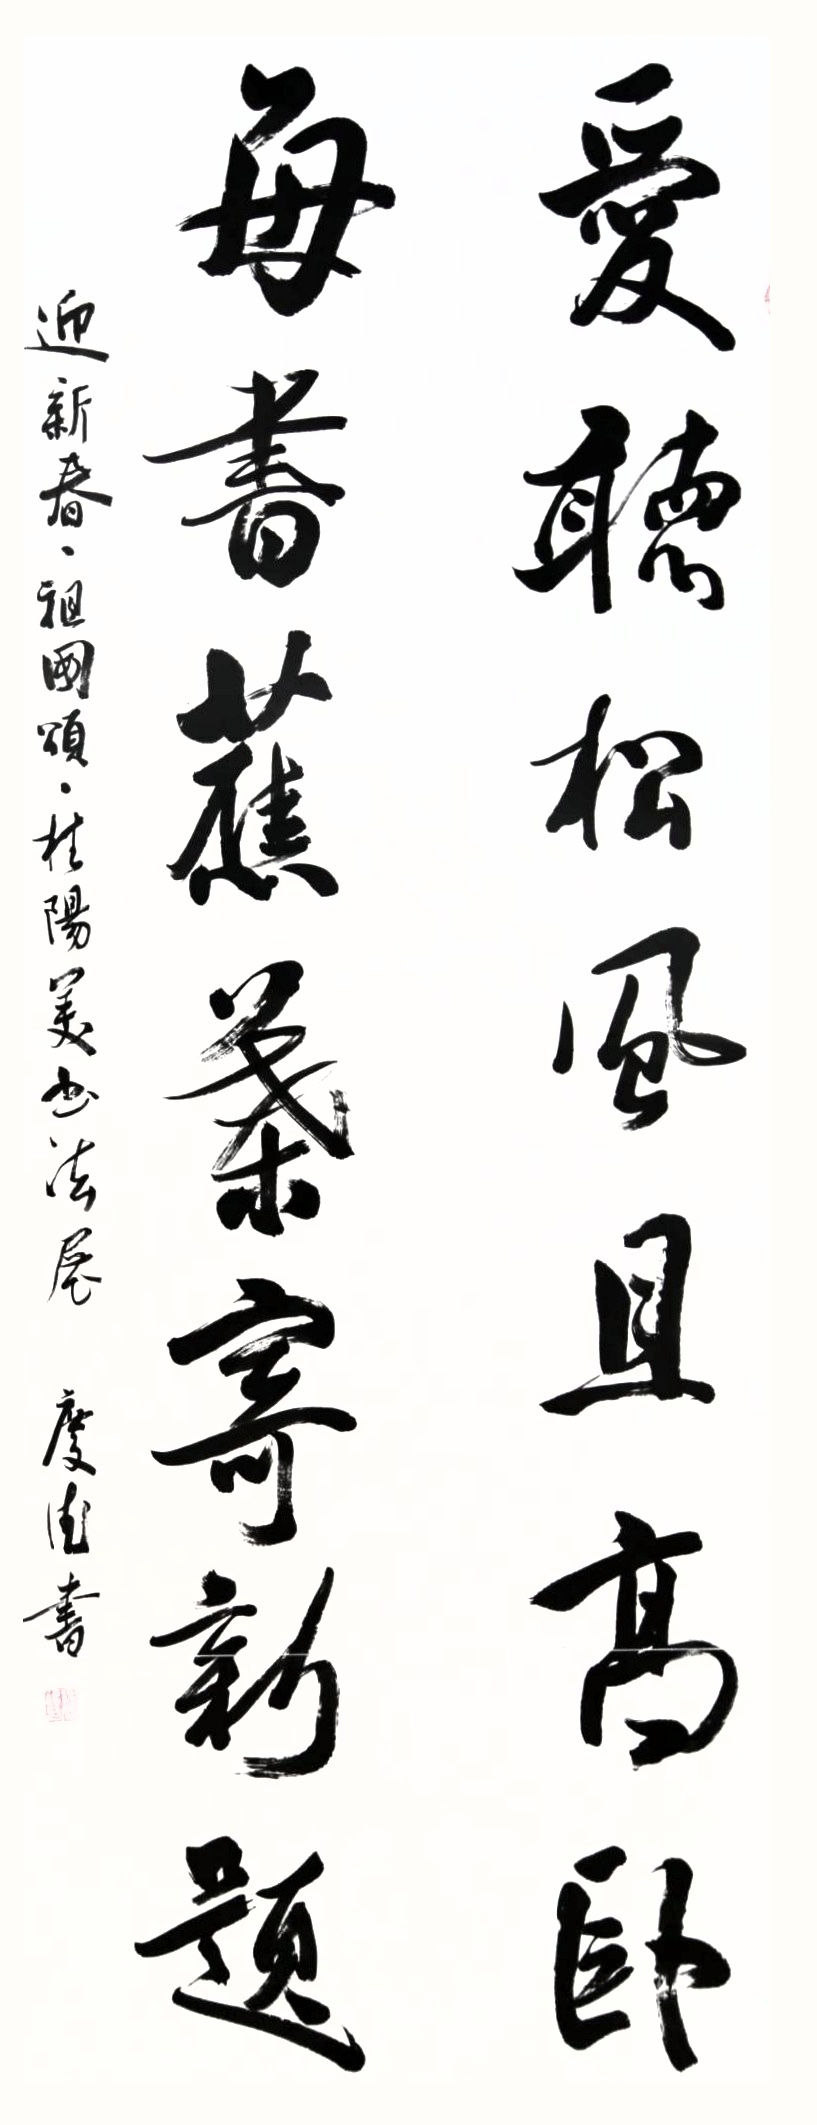 愛聽松風且高卧
每書蕉葉寄新題
迎新春、祖國頌、桂陽美书法展 慶德書